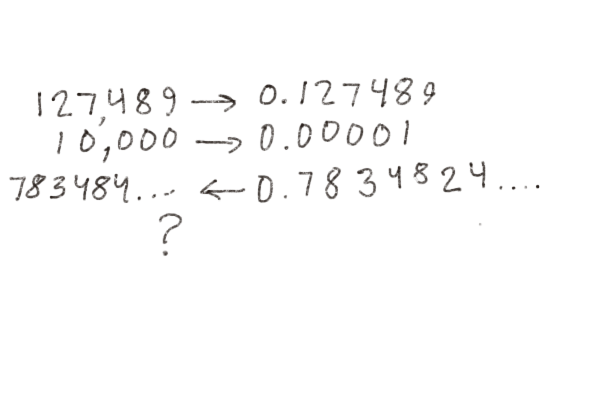 127,489 → 0.127489
10,000 → 0.00001
783484... ← 0.7834824....
?